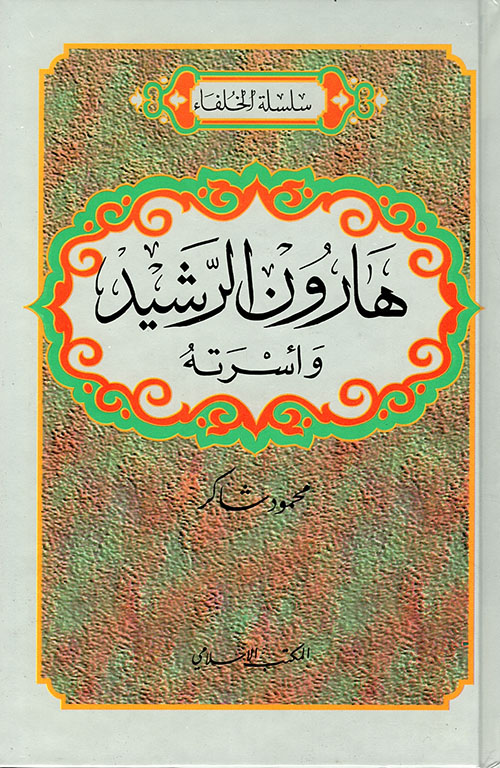 سلسلة الخلفاء
هَارُون الرَّشيد
وَأسْرَتهُ
محمود شاكر
المكتب الإسلامي